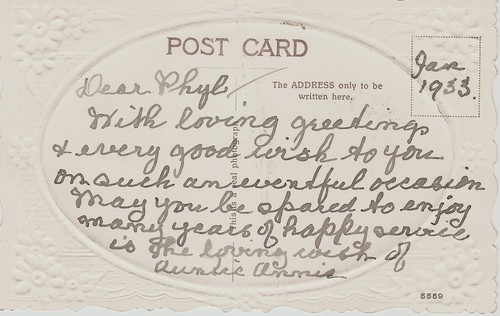 POST CARD
Jan
1933.
Dear Phyl,
The ADDRESS only to be
written here.
With loving greetings
& every good wish to you
on such an eventful occasion
May you be spared to enjoy
many years of happy service
is the loving wish of
Auntie Annie
This is a real photograph
5559